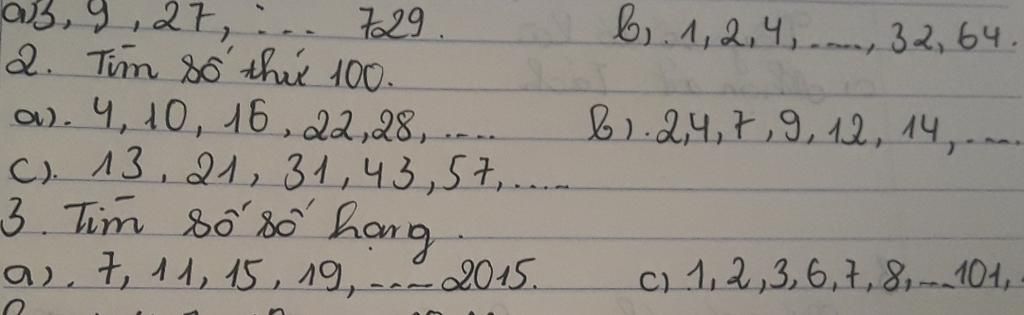 a) 3, 9, 27, .... 729. b). 1, 2, 4, ....., 32, 64.
2. Tìm số thứ 100.
a). 4, 10, 16, 22, 28, ..... b). 2, 4, 7, 9, 12, 14, .....
c). 13, 21, 31, 43, 57, .....
3. Tìm số số hạng.
a). 7, 11, 15, 19, .... 2015. c) 1, 2, 3, 6, 7, 8, ... 101, .